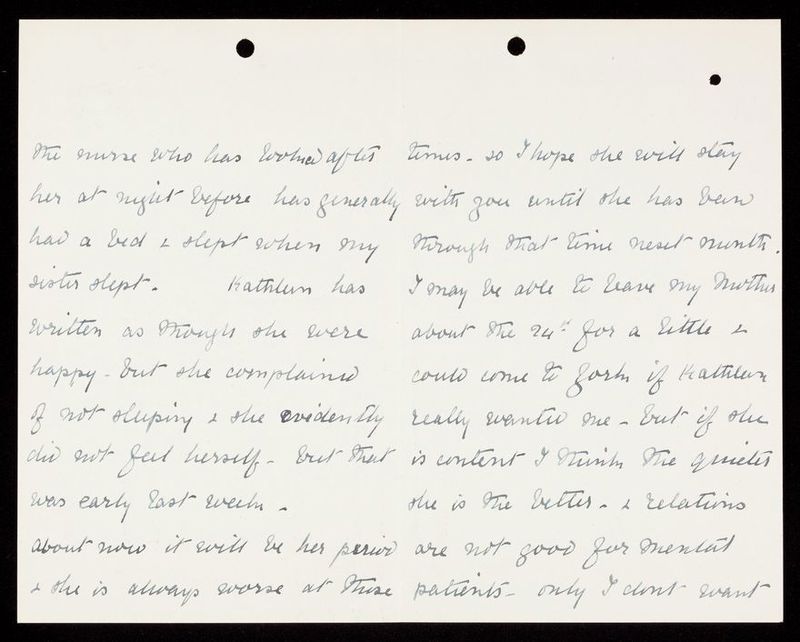 The nurse who has looked after
her at night before has generally
had a bed & slept when my
sister slept. Kathleen has
written as though she were
happy - but she complained
of not sleeping & she evidently
did not feel herself - but that
was early last week -
about now it will be her period
& she is always worse at those
times - so I hope she will stay
with you until she has been
through that time next month.
I may be able to leave my Mother
about the 24th for a little &
could come to York if Kathleen
really wanted me - but if she
is content I think the quieter
she is the better - & relations
are not good for mental
patients - only I dont want